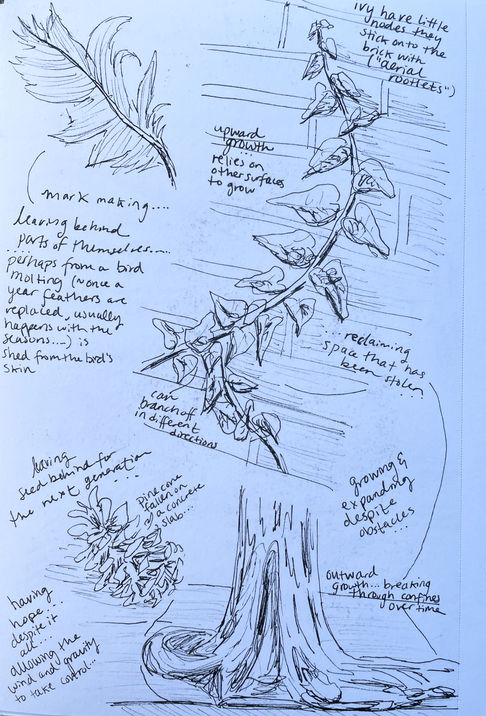 ivy have little
nodes they
stick onto the
brick with
("aerial
rootlets")
upward
growth...
relies on
other surfaces
to grow
mark making....
leaving behind
parts of themselves....
... perhaps from a bird
molting (~once a
year feathers are
replaced, usually
happens with the
seasons...) is
shed from the bird's
skin
... reclaiming
space that has
been stolen
can
branch off
in different
directions
leaving
seed behind for
the next generation
...
pinecone
fallen on
a concrete
slab...
growing &
expanding
despite
obstacles...
outward
growth... breaking
through confines
over time
having
hope...
despite it
all....
allowing the
wind and gravity
to take control...